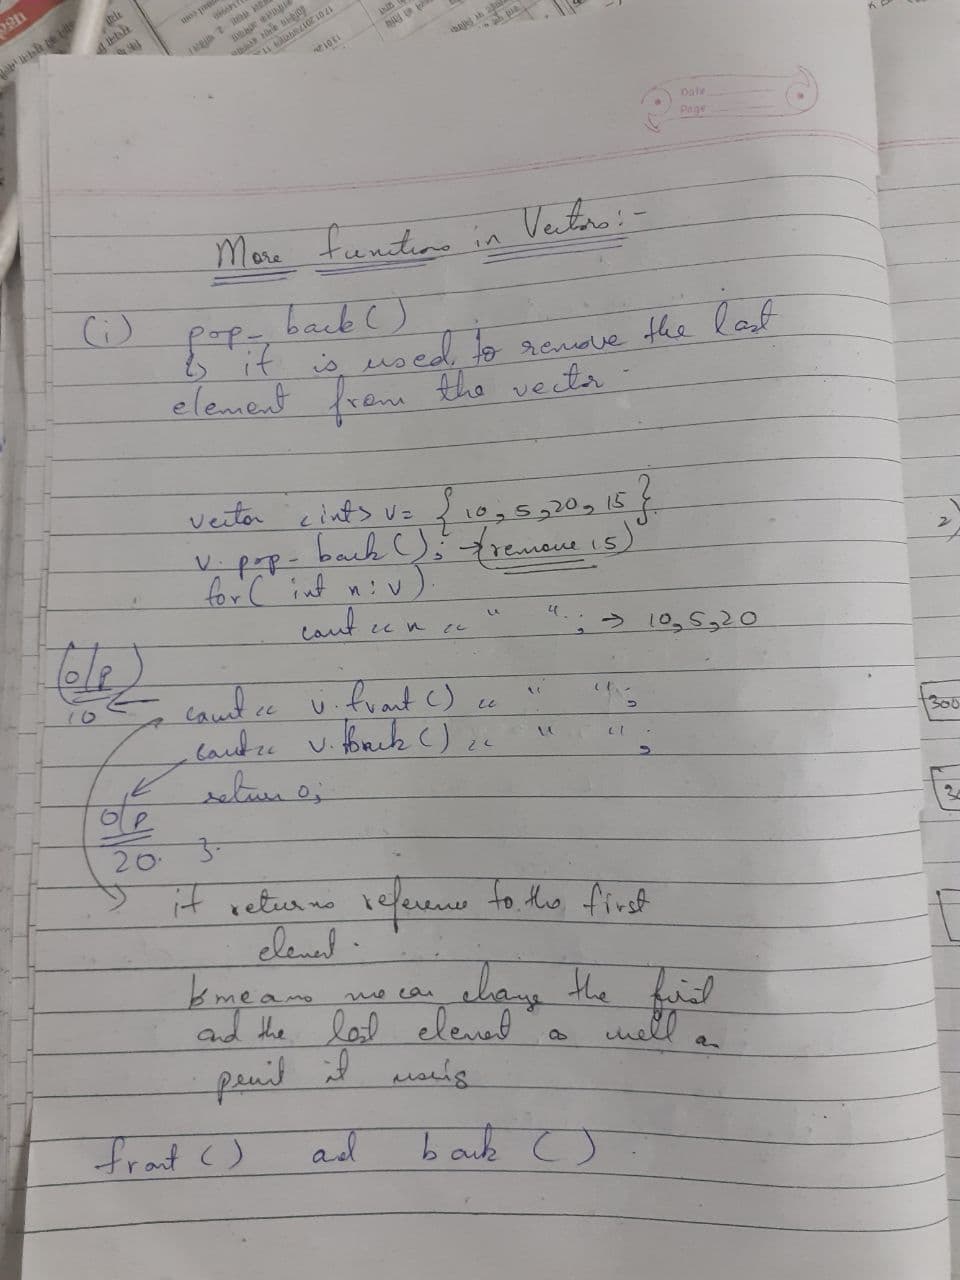 Date
Page
More functions in Vectors:-
(i) pop_back()
↳ it is used to remove the last
element from the vector.
vector <int> v= {10, 5, 20, 15}
v.pop_back(); → (remove 15)
for( int n: v)
cout << n << " "; → 10, 5, 20
(O/P)
10 ← cout << v.front() << " ";
cout << v.back() << " ";
return 0;
O/P
20. }.
it returns reference to the first
element.
↳ means we can change the first
and the last element as well as
it using
front() and back().
2)
300